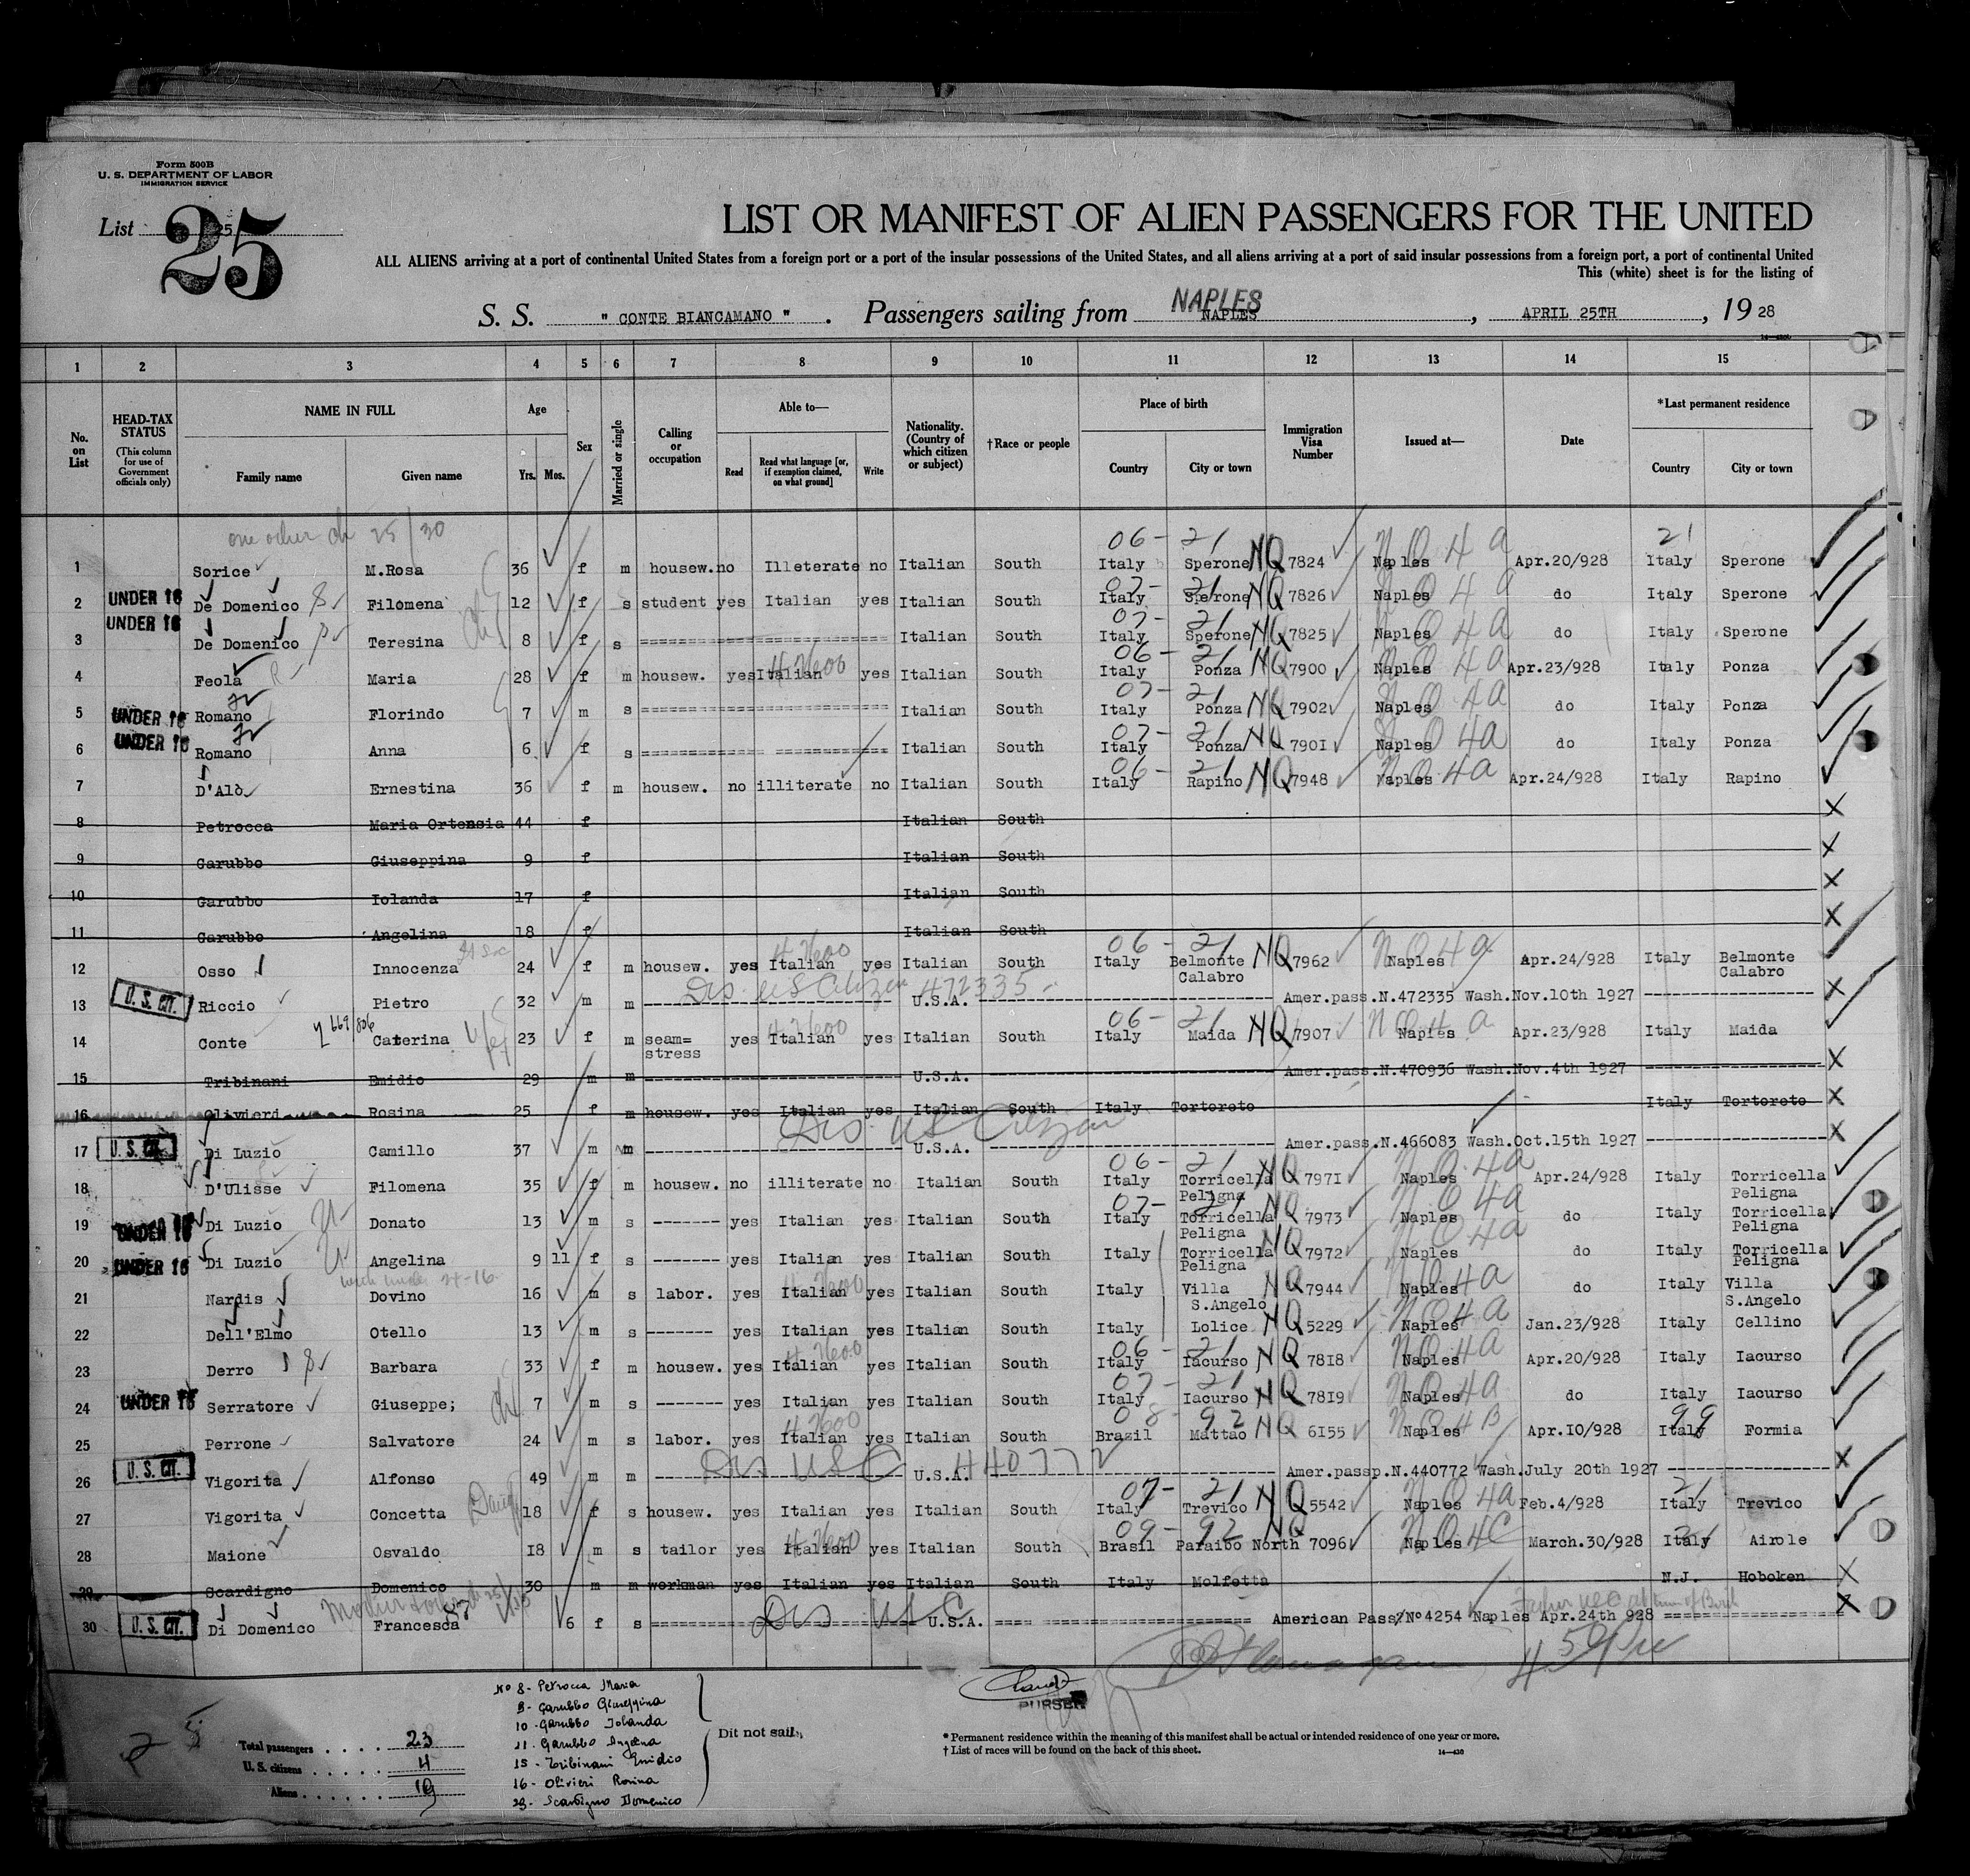 Form 500B
U. S. DEPARTMENT OF LABOR
IMMIGRATION SERVICE
List 25
25
LIST OR MANIFEST OF ALIEN PASSENGERS FOR THE UNITED
ALL ALIENS arriving at a port of continental United States from a foreign port or a port of the insular possessions of the United States, and all aliens arriving at a port of said insular possessions from a foreign port, a port of continental United
This (white) sheet is for the listing of
S. S. " CONTE BIANCAMANO " . Passengers sailing from NAPLES NAPLES , APRIL 25TH , 19 28
1 2 3 4 5 6 7 8 9 10 11 12 13 14 15
No. on List
HEAD-TAX STATUS
(This column for use of Government officials only)
NAME IN FULL
Family name Given name
Age
Yrs. Mos.
Sex
Married or single
Calling or occupation
Able to—
Read
Read what language [or, if exemption claimed, on what ground]
Write
Nationality. (Country of which citizen or subject)
†Race or people
Place of birth
Country City or town
Immigration Visa Number
Issued at—
Date
*Last permanent residence
Country City or town
25/30
06 - 21 21
1 Sorice M.Rosa 36 f m housew. no Illeterate no Italian South Italy Sperone NQ 7824 Naples Apr.20/928 Italy Sperone
2 UNDER 16 De Domenico Filomena 12 f s student yes Italian yes Italian South Italy Sperone NQ 7826 Naples do Italy Sperone
3 UNDER 16 De Domenico Teresina 8 f s Italian South Italy Sperone NQ 7825 Naples do Italy Sperone
4 Feola Maria 28 f m housew. yes Italian yes Italian South Italy Ponza NQ 7900 Naples Apr.23/928 Italy Ponza
5 UNDER 16 Romano Florindo 7 m s Italian South Italy Ponza NQ 7902 Naples do Italy Ponza
6 UNDER 16 Romano Anna 6 f s Italian South Italy Ponza NQ 7901 Naples do Italy Ponza
7 D'Alò Ernestina 36 f m housew. no illiterate no Italian South Italy Rapino NQ 7948 Naples Apr.24/928 Italy Rapino
8 Petrocca Maria Ortensia 44 f Italian South
9 Garubbo Giuseppina 9 f Italian South
10 Garubbo Iolanda 17 f Italian South
11 Garubbo Angelina 18 f Italian South
12 Osso Innocenza 24 f m housew. yes Italian yes Italian South Italy Belmonte Calabro NQ 7962 Naples Apr.24/928 Italy Belmonte Calabro
Dis. US Citizen 472335
13 U.S. CIT. Riccio Pietro 32 m m U.S.A. Amer.pass.N.472335 Wash.Nov.10th 1927
14 Conte Caterina 23 f m seam= stress yes Italian yes Italian South Italy Maida NQ 7907 Naples Apr.23/928 Italy Maida
15 Tribinani Emidio 29 m m U.S.A. Amer.pass.N.470936 Wash.Nov.4th 1927
16 Olivieri Rosina 25 f m housew. yes Italian yes Italian South Italy Tortoreto Italy Tortoreto
Dis. US Citizen
17 U.S. CIT. Di Luzio Camillo 37 m m U.S.A. Amer.pass.N.466083 Wash.Oct.15th 1927
18 D'Ulisse Filomena 35 f m housew. no illiterate no Italian South Italy Torricella Peligna NQ 7971 Naples Apr.24/928 Italy Torricella Peligna
19 UNDER 16 Di Luzio Donato 13 m s yes Italian yes Italian South Italy Torricella Peligna NQ 7973 Naples do Italy Torricella Peligna
20 UNDER 16 Di Luzio Angelina 9 11 f s yes Italian yes Italian South Italy Torricella Peligna NQ 7972 Naples do Italy Torricella Peligna
21 Nardis Dovino 16 m s labor. yes Italian yes Italian South Italy Villa S.Angelo NQ 7944 Naples do Italy Villa S.Angelo
22 Dell'Elmo Otello 13 m s yes Italian yes Italian South Italy Lolice NQ 5229 Naples Jan.23/928 Italy Cellino
23 Derro Barbara 33 f m housew. yes Italian yes Italian South Italy Iacurso NQ 7818 Naples Apr.20/928 Italy Iacurso
24 UNDER 16 Serratore Giuseppe; 7 m s yes Italian yes Italian South Italy Iacurso NQ 7819 Naples do Italy Iacurso
25 Perrone Salvatore 24 m s labor. yes Italian yes Italian South Brazil Mattao NQ 6155 Naples Apr.10/928 Italy Formia
Dis USC 440772
26 U.S. CIT. Vigorita Alfonso 49 m m U.S.A. Amer.passp.N.440772 Wash.July 20th 1927
27 Vigorita Concetta 18 f s housew. yes Italian yes Italian South Italy Trevico NQ 5542 Naples Feb.4/928 Italy Trevico
28 Maione Osvaldo 18 m s tailor yes Italian yes Italian South Brasil Paraibo North NQ 7096 Naples March.30/928 Italy Airole
29 Scardigno Domenico 30 m m workman yes Italian yes Italian South Italy Molfetta N.J. Hoboken
30 U.S. CIT. Di Domenico Francesca 6 f s Dis USC U.S.A. American Pass/No4254 Naples Apr.24th 928
PURSER
Total passengers . . . . 23
U. S. citizens . . . . . 4
Aliens . . . . . . 19
No 8 - Petrocca Maria
9 - Garubbo Giuseppina
10 - Garubbo Iolanda
11 - Garubbo Angelina
15 - Tribinani Emidio
16 - Olivieri Rosina
29 - Scardigno Domenico
Dit not sail,
* Permanent residence within the meaning of this manifest shall be actual or intended residence of one year or more.
† List of races will be found on the back of this sheet.
14—430